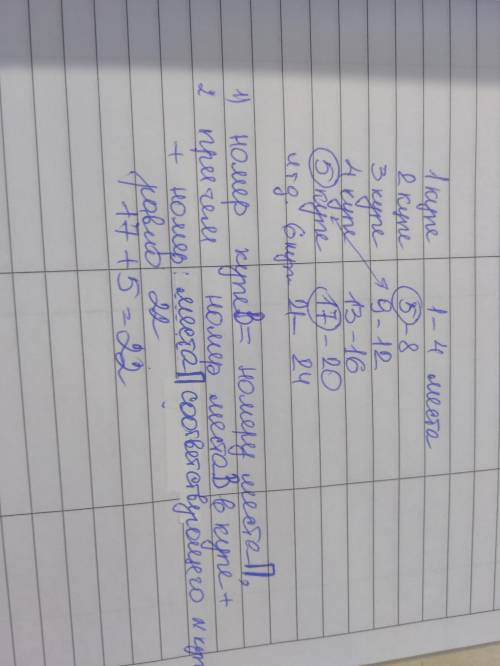 1 купе 1 - 4 места
2 купе 5 - 8
3 купе 9 - 12
4 купе 13 - 16
5 купе 17 - 20
итд. 6 купе 21 - 24
1) номер купеВ = номеру местаП,
2 причем номер местаВ в купе +
+ номер местаП соответствующего N куп
равно 22
17 + 5 = 22